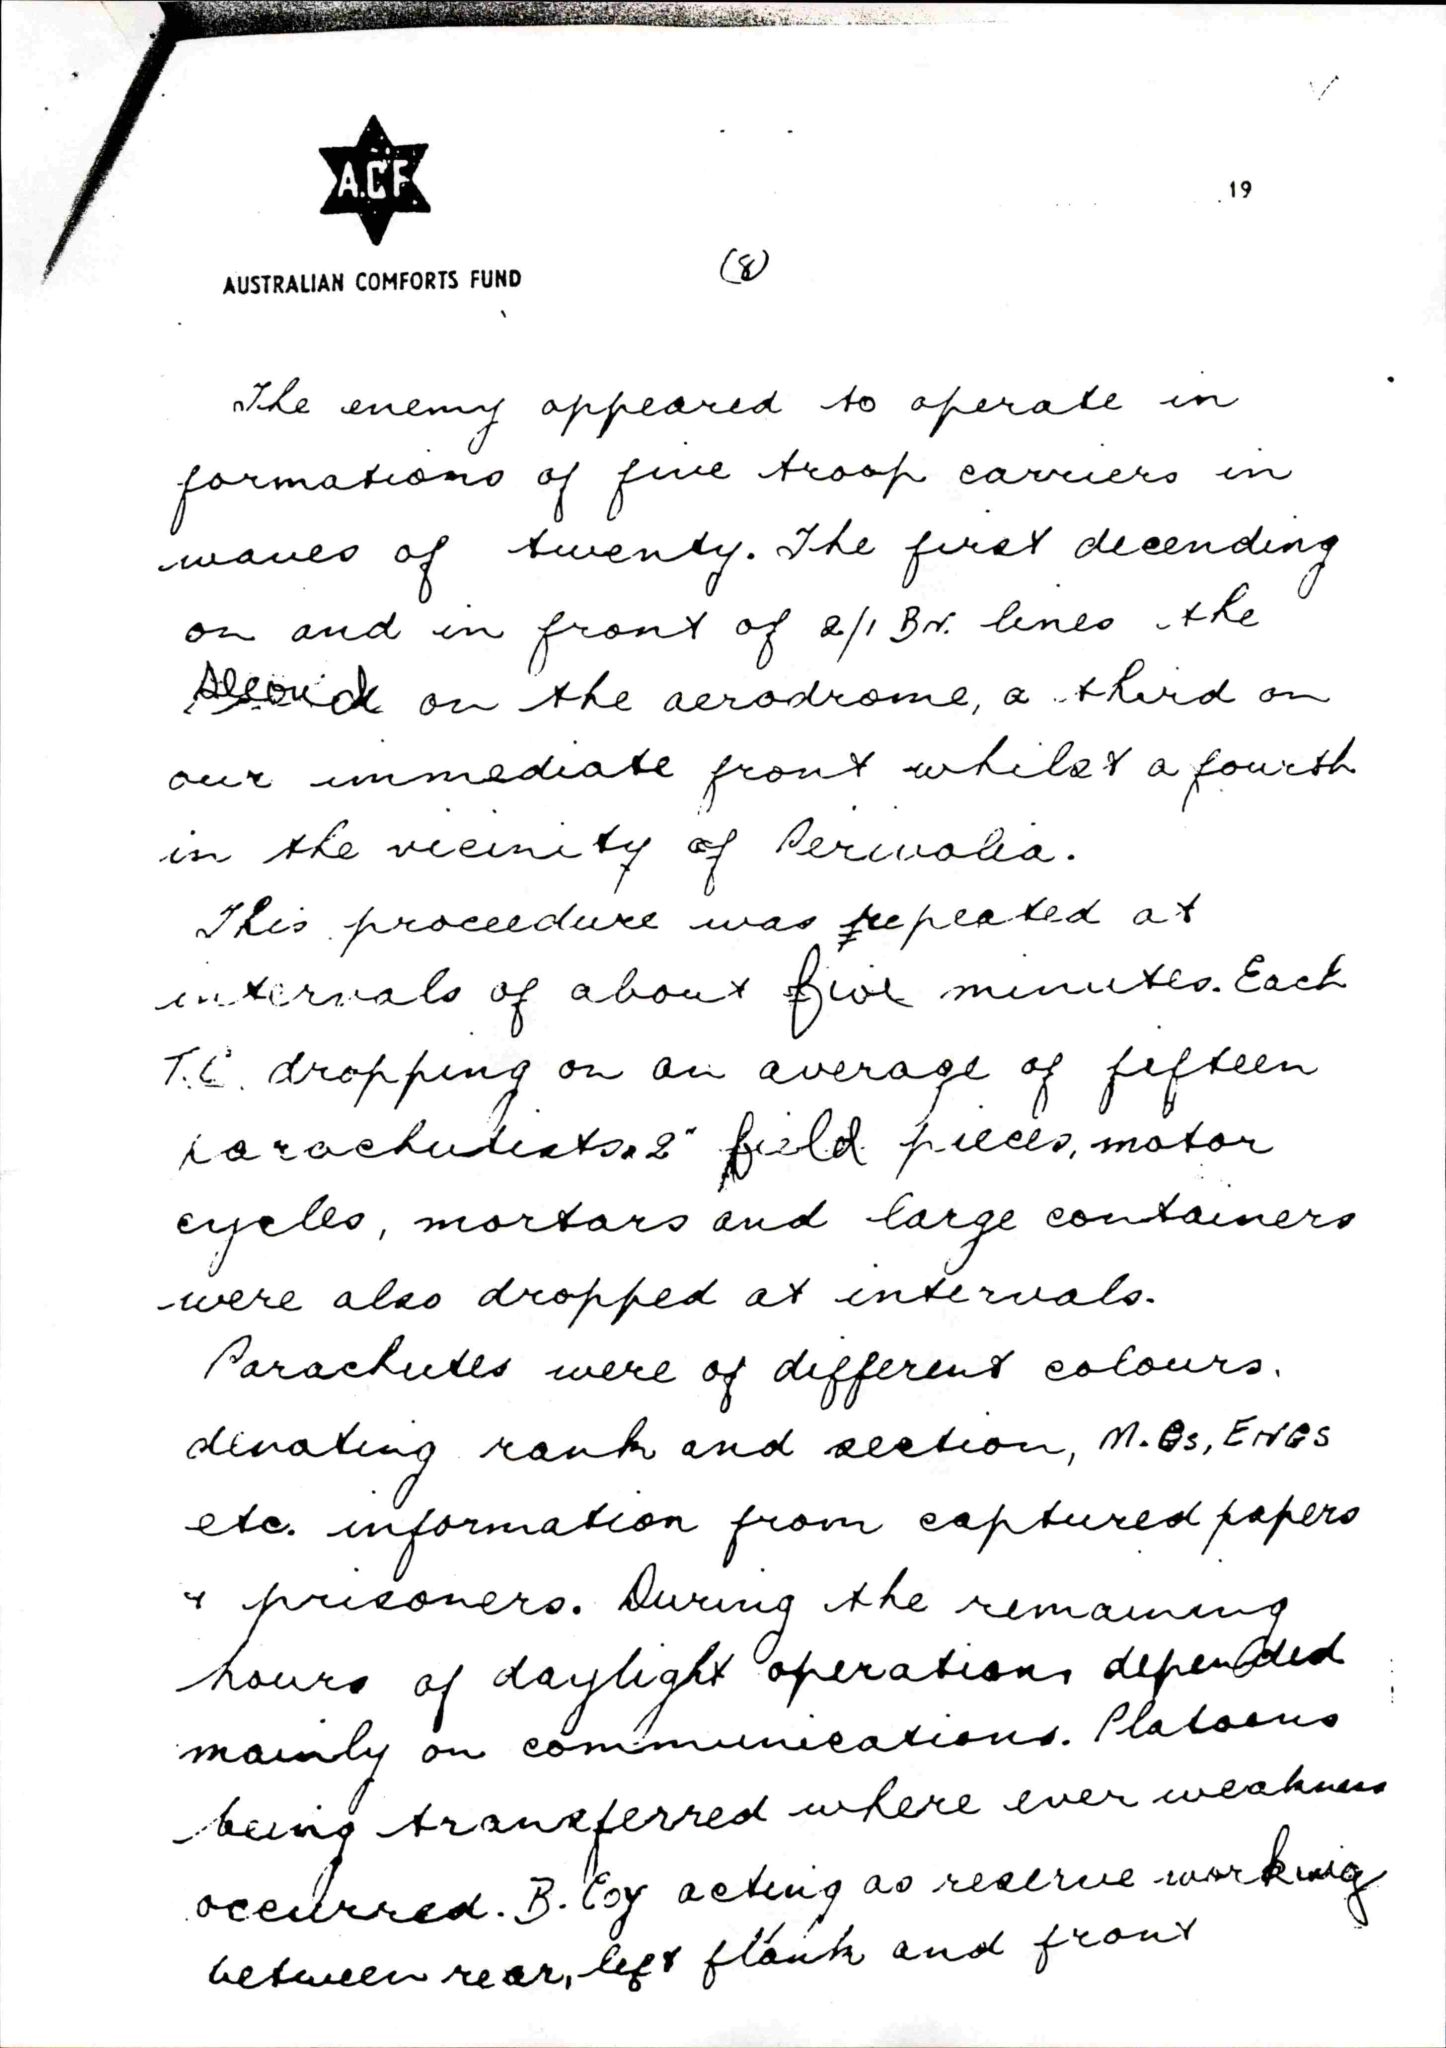 A.C F
19
AUSTRALIAN COMFORTS FUND
(8)
The enemy appeared to operate in
formations of five troop carriers in
waves of twenty. The first decending
on and in front of 2/1 BN. lines the
second on the aerodrome, a third on
our immediate front whilst a fourth
in the vicinity of Perivolia.
This proceedure was repeated at
intervals of about five minutes. Each
T.C. dropping on an average of fifteen
parachutists. 2" field pieces, motor
cycles, mortars and large containers
were also dropped at intervals.
Parachutes were of different colours.
denoting rank and section, M.Gs, ENGS
etc. information from captured papers
& prisoners. During the remaining
hours of daylight operations depended
mainly on communications. Platoons
being transferred where ever weakness
occurred. B. Coy acting as reserve working
between rear, left flank and front